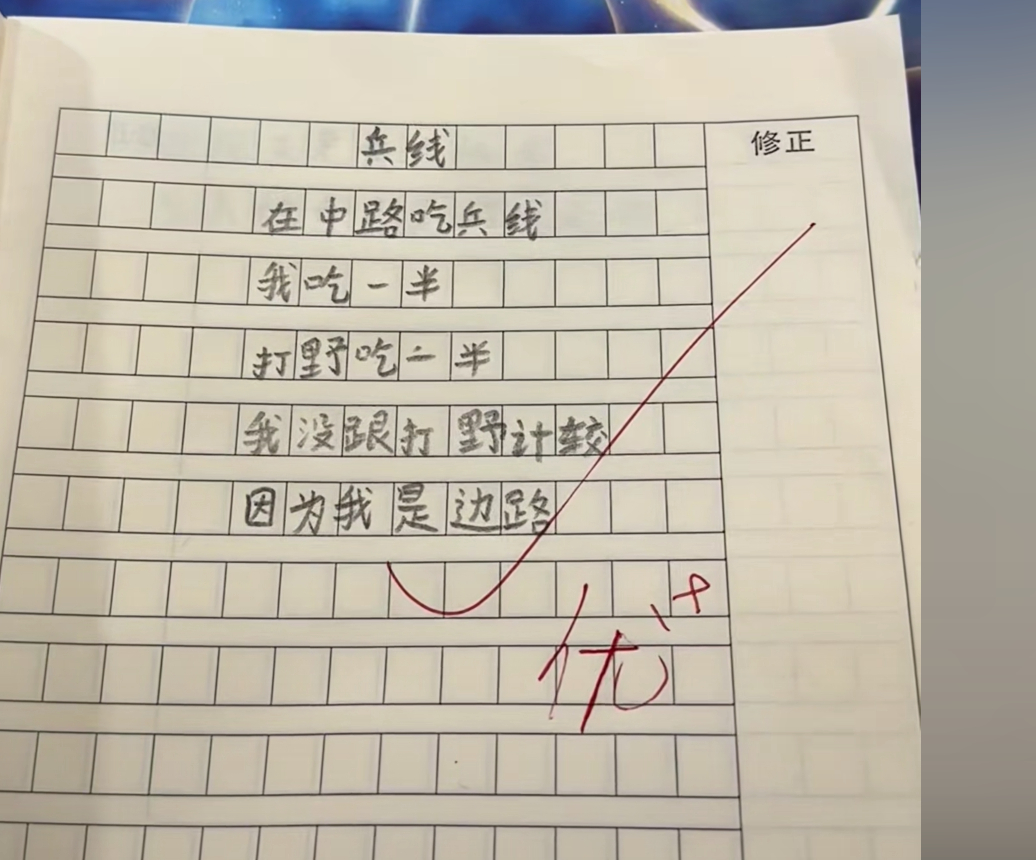 兵线
修正
在中路吃兵线
我吃一半
打野吃一半
我没跟打野计较
因为我是边路
优+